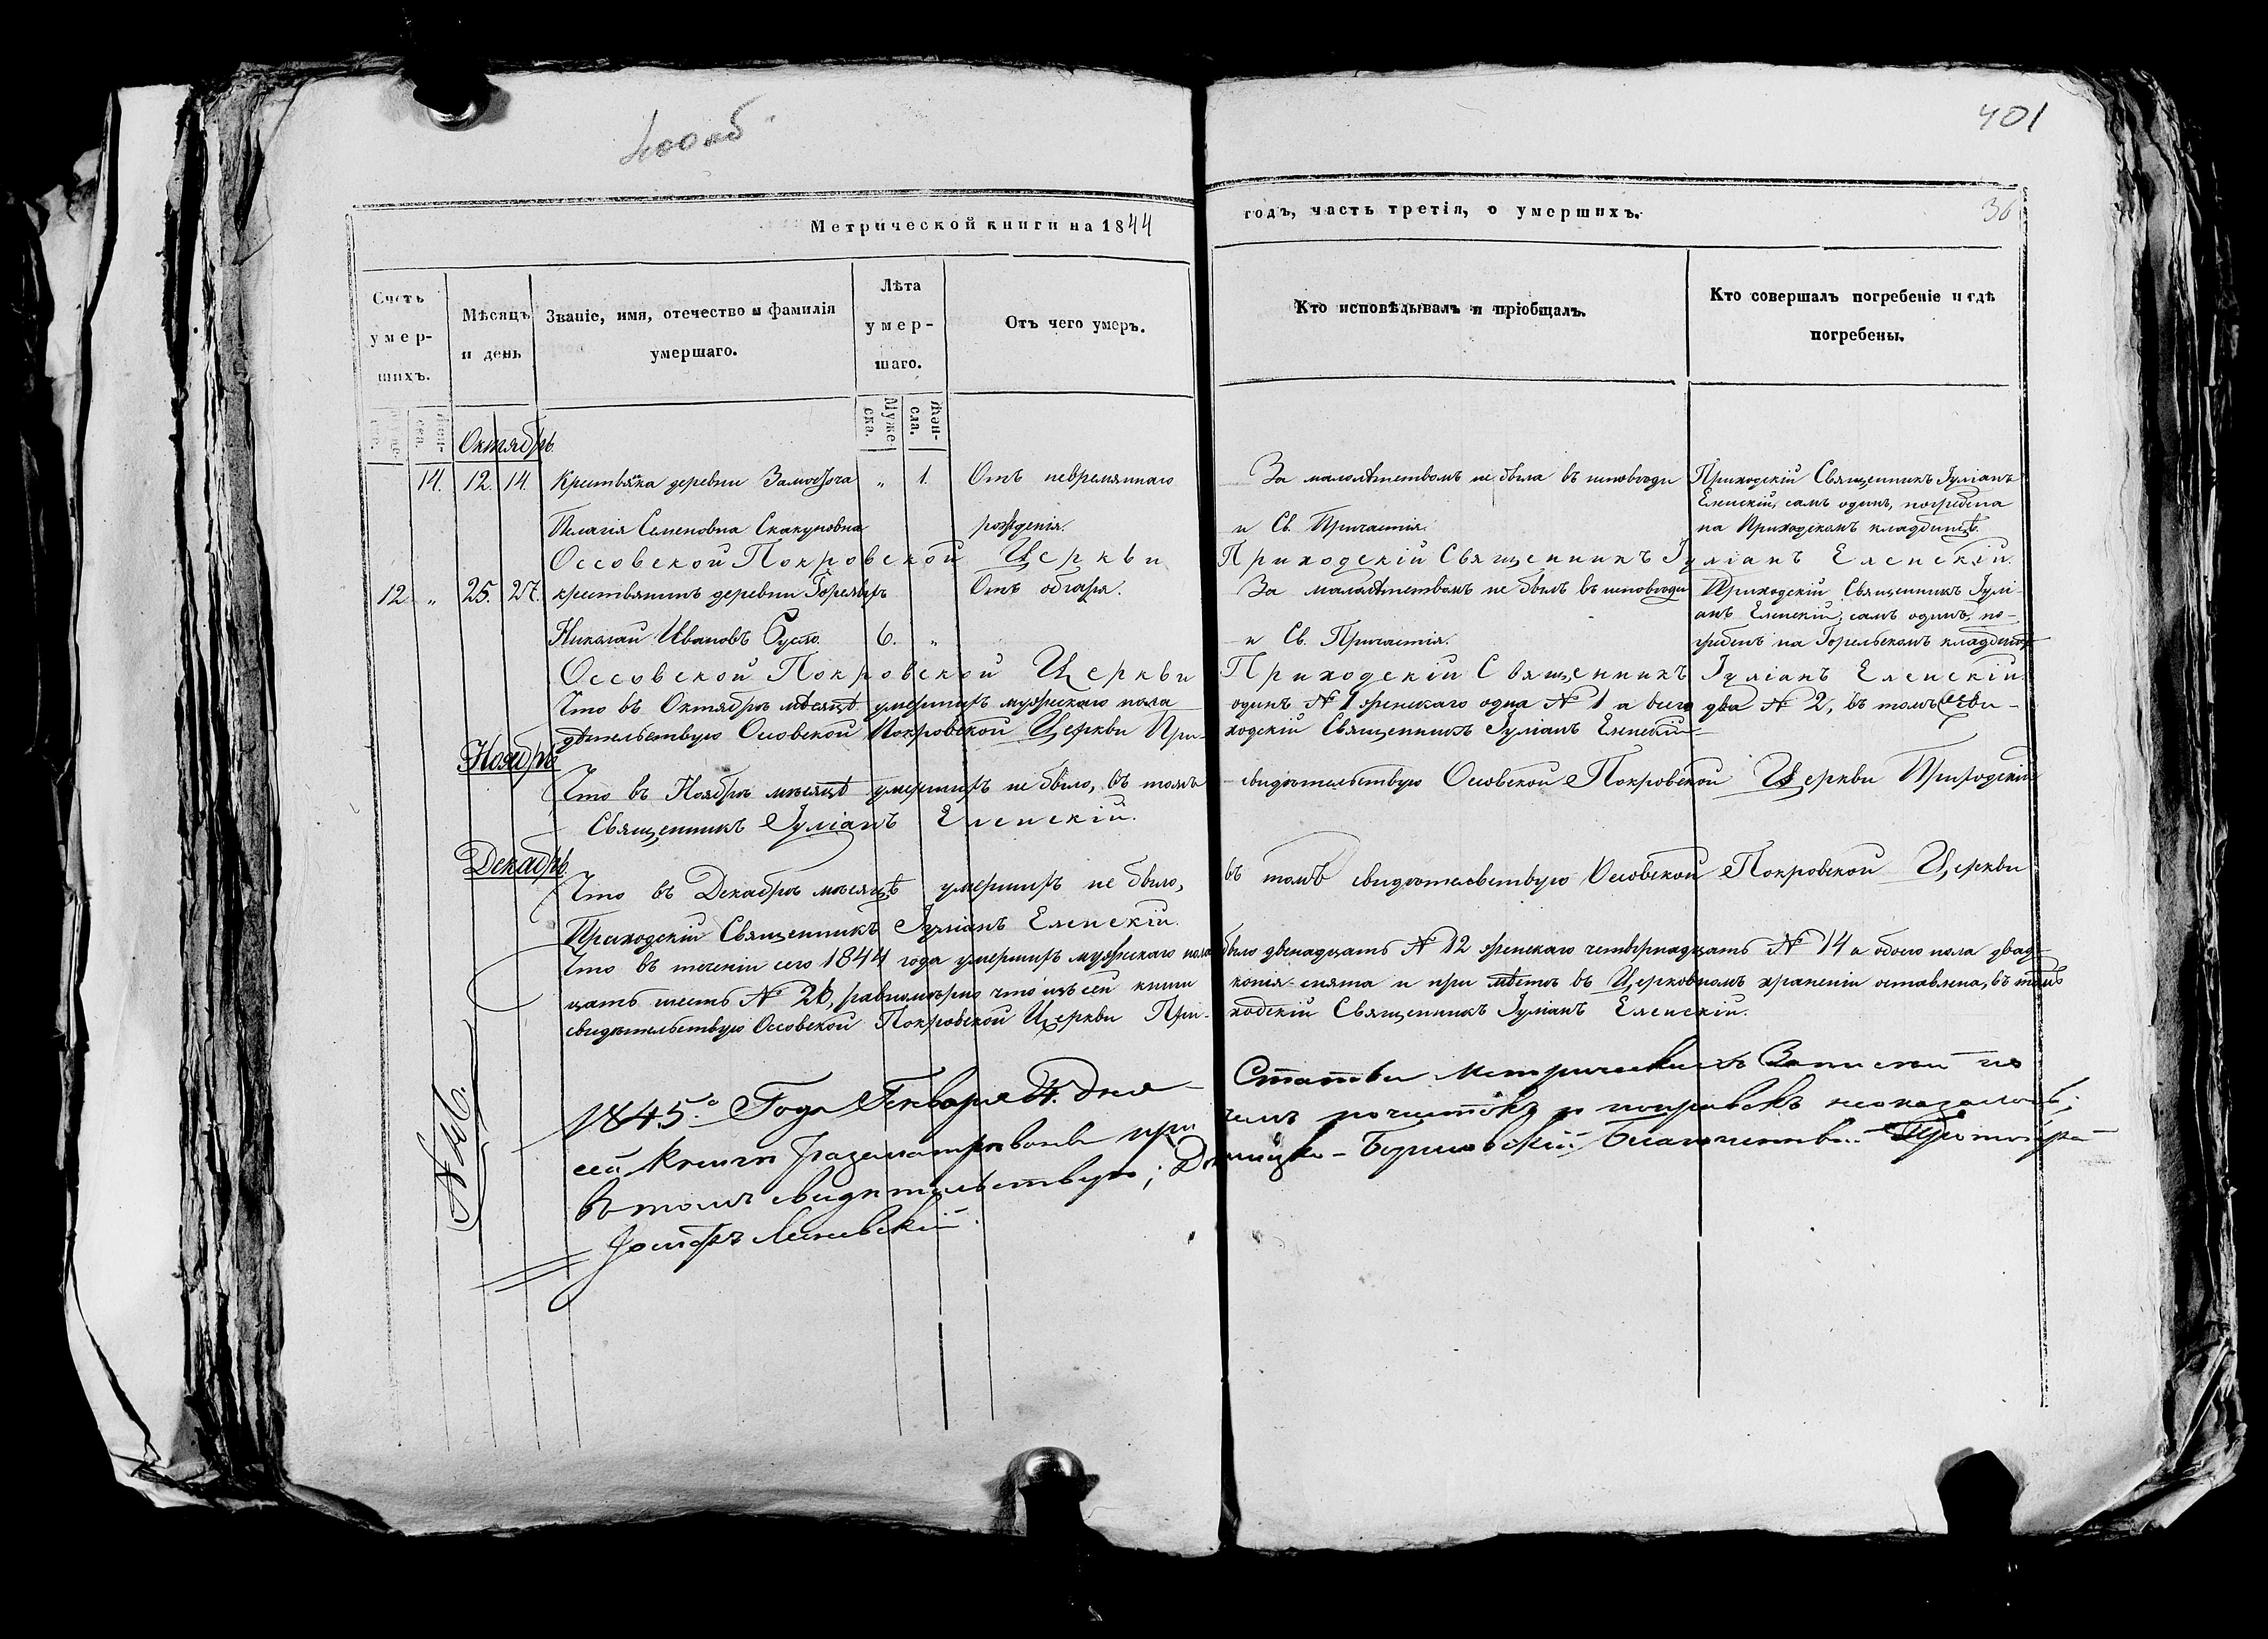 400 об
401
36
Метрической книги на 1844 годъ, часть третія, о умершихъ.
Счетъ умер-шихъ.
Мѣсяцъ и день
Званіе, имя, отечество и фамилія умершаго.
Лѣта умер-шаго.
Отъ чего умеръ.
Кто исповѣдывалъ и пріобщалъ.
Кто совершалъ погребеніе и гдѣ погребены.
Муже-ска. Жен-ска.
Октябрь.
14. 12. 14. Крестьянка деревни Замосточа „ 1. Отъ невремяннаго За малолѣтствомъ не была въ исповѣди Приходскій Священникъ Іуліанъ
Еленскій, самъ одинъ, погребена
Пелагія Семеновна Скакуновна рожденія. и Св. Причастія. на Приходскомъ кладбищѣ.
Оссовской Покровской Церкви Приходскій Священникъ Іуліанъ Еленскій.
12 „ 25. 27. крестьянинъ деревни Отъ обгара. За малолѣтствомъ не былъ въ исповѣди Приходскій Священникъ Іулі-
анъ Еленскій, самъ одинъ, по-
Николай Ивановъ Сусло. 6. „ и Св. Причастія. гребенъ на Горельскомъ кладбищѣ
Оссовской Покровской Церкви Приходскій Священникъ Іуліанъ Еленскій.
Что въ Октябрѣ мѣсяцѣ умершихъ мужескаго пола одинъ № 1 женскаго одна № 1 а всего два № 2, въ томъ сви-
дѣтельствую Осовской Покровской Церкви При-ходскій Священникъ Іуліанъ Еленскій
Ноябрь
Что въ Ноябрѣ мѣсяцѣ умершихъ не было, въ томъ свидѣтельствую Осовской Покровской Церкви Приходскій
Священникъ Іуліанъ Еленскій.
Декабрь.
Что въ Декабрѣ мѣсяцѣ умершихъ не было, въ томъ свидѣтельствую Осовской Покровской Церкви
Приходскій Священникъ Іуліанъ Еленскій.
Что въ теченіи сего 1844 года умершихъ мужескаго пола было двенадцать № 12 женскаго четырнадцать № 14 а обоего пола двад-
цать шесть № 26, равномѣрно что изъ сей книги копія снята и при мѣстѣ въ Церковномъ храненіи оставлена, въ томъ
свидѣтельствую Оссовской Покровской Церкви При-ходскій Священникъ Іуліанъ Еленскій.
1845.º Года Генваря дня Статьи Метрическихъ Записей по
сей книги разсматриваны при чемъ почистокъ и поправокъ неоказалось;
въ томъ свидѣтельствую; Борисовскій Благочинный Протоіерей